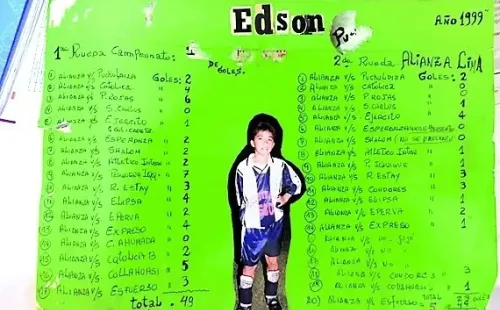 Edson
AÑO 1999
1ra Rueda Campeonato:
DE GOLES.
ALIANZA V/S PUCHULDIZA GOLES: 2
ALIANZA V/S CATOLICA " 4
ALIANZA V/S P. ROJAS " 6
ALIANZA V/S S. CARLOS " 0
ALIANZA V/S EJERCITO " 1
ALIANZA V/S ESPERANZA " 2
ALIANZA V/S SHALOM " 2
ALIANZA V/S ATLETICO INTER "
ALIANZA V/S 7
ALIANZA V/S R. ESTAY " 3
ALIANZA V/S ELIPSA " 4
ALIANZA V/S EPERVA " 2
ALIANZA V/S EXPRESO " 4
ALIANZA V/S C. AHUMADA " 0
ALIANZA V/S CATOLICA B " 2
ALIANZA V/S COLLAHUASI " 5
ALIANZA V/S ESFUERZO " 3
Total. 49
2da Rueda ALIANZA LIMA
ALIANZA V/S PUCHULDIZA GOLES: 2
ALIANZA V/S CATOLICA " 0
ALIANZA V/S P. ROJAS " 0
ALIANZA V/S S. CARLOS " 1
ALIANZA V/S EJERCITO " 4
ALIANZA V/S ESPERANZA 0
ALIANZA V/S SHALOM 0
ALIANZA V/S ATLETICO INTER " 1
ALIANZA V/S P. IQUIQUE " 1
ALIANZA V/S R. ESTAY " 3
ALIANZA V/S CONDORES " 3
ALIANZA V/S ELIPSA " 1
ALIANZA V/S EPERVA " 2
ALIANZA V/S EXPRESO " 1
ALIANZA V/S NO
ALIANZA V/S NO
ALIANZA V/S NO
ALIANZA V/S 3
ALIANZA V/S 1
20) ALIANZA V/S ESFUERZO